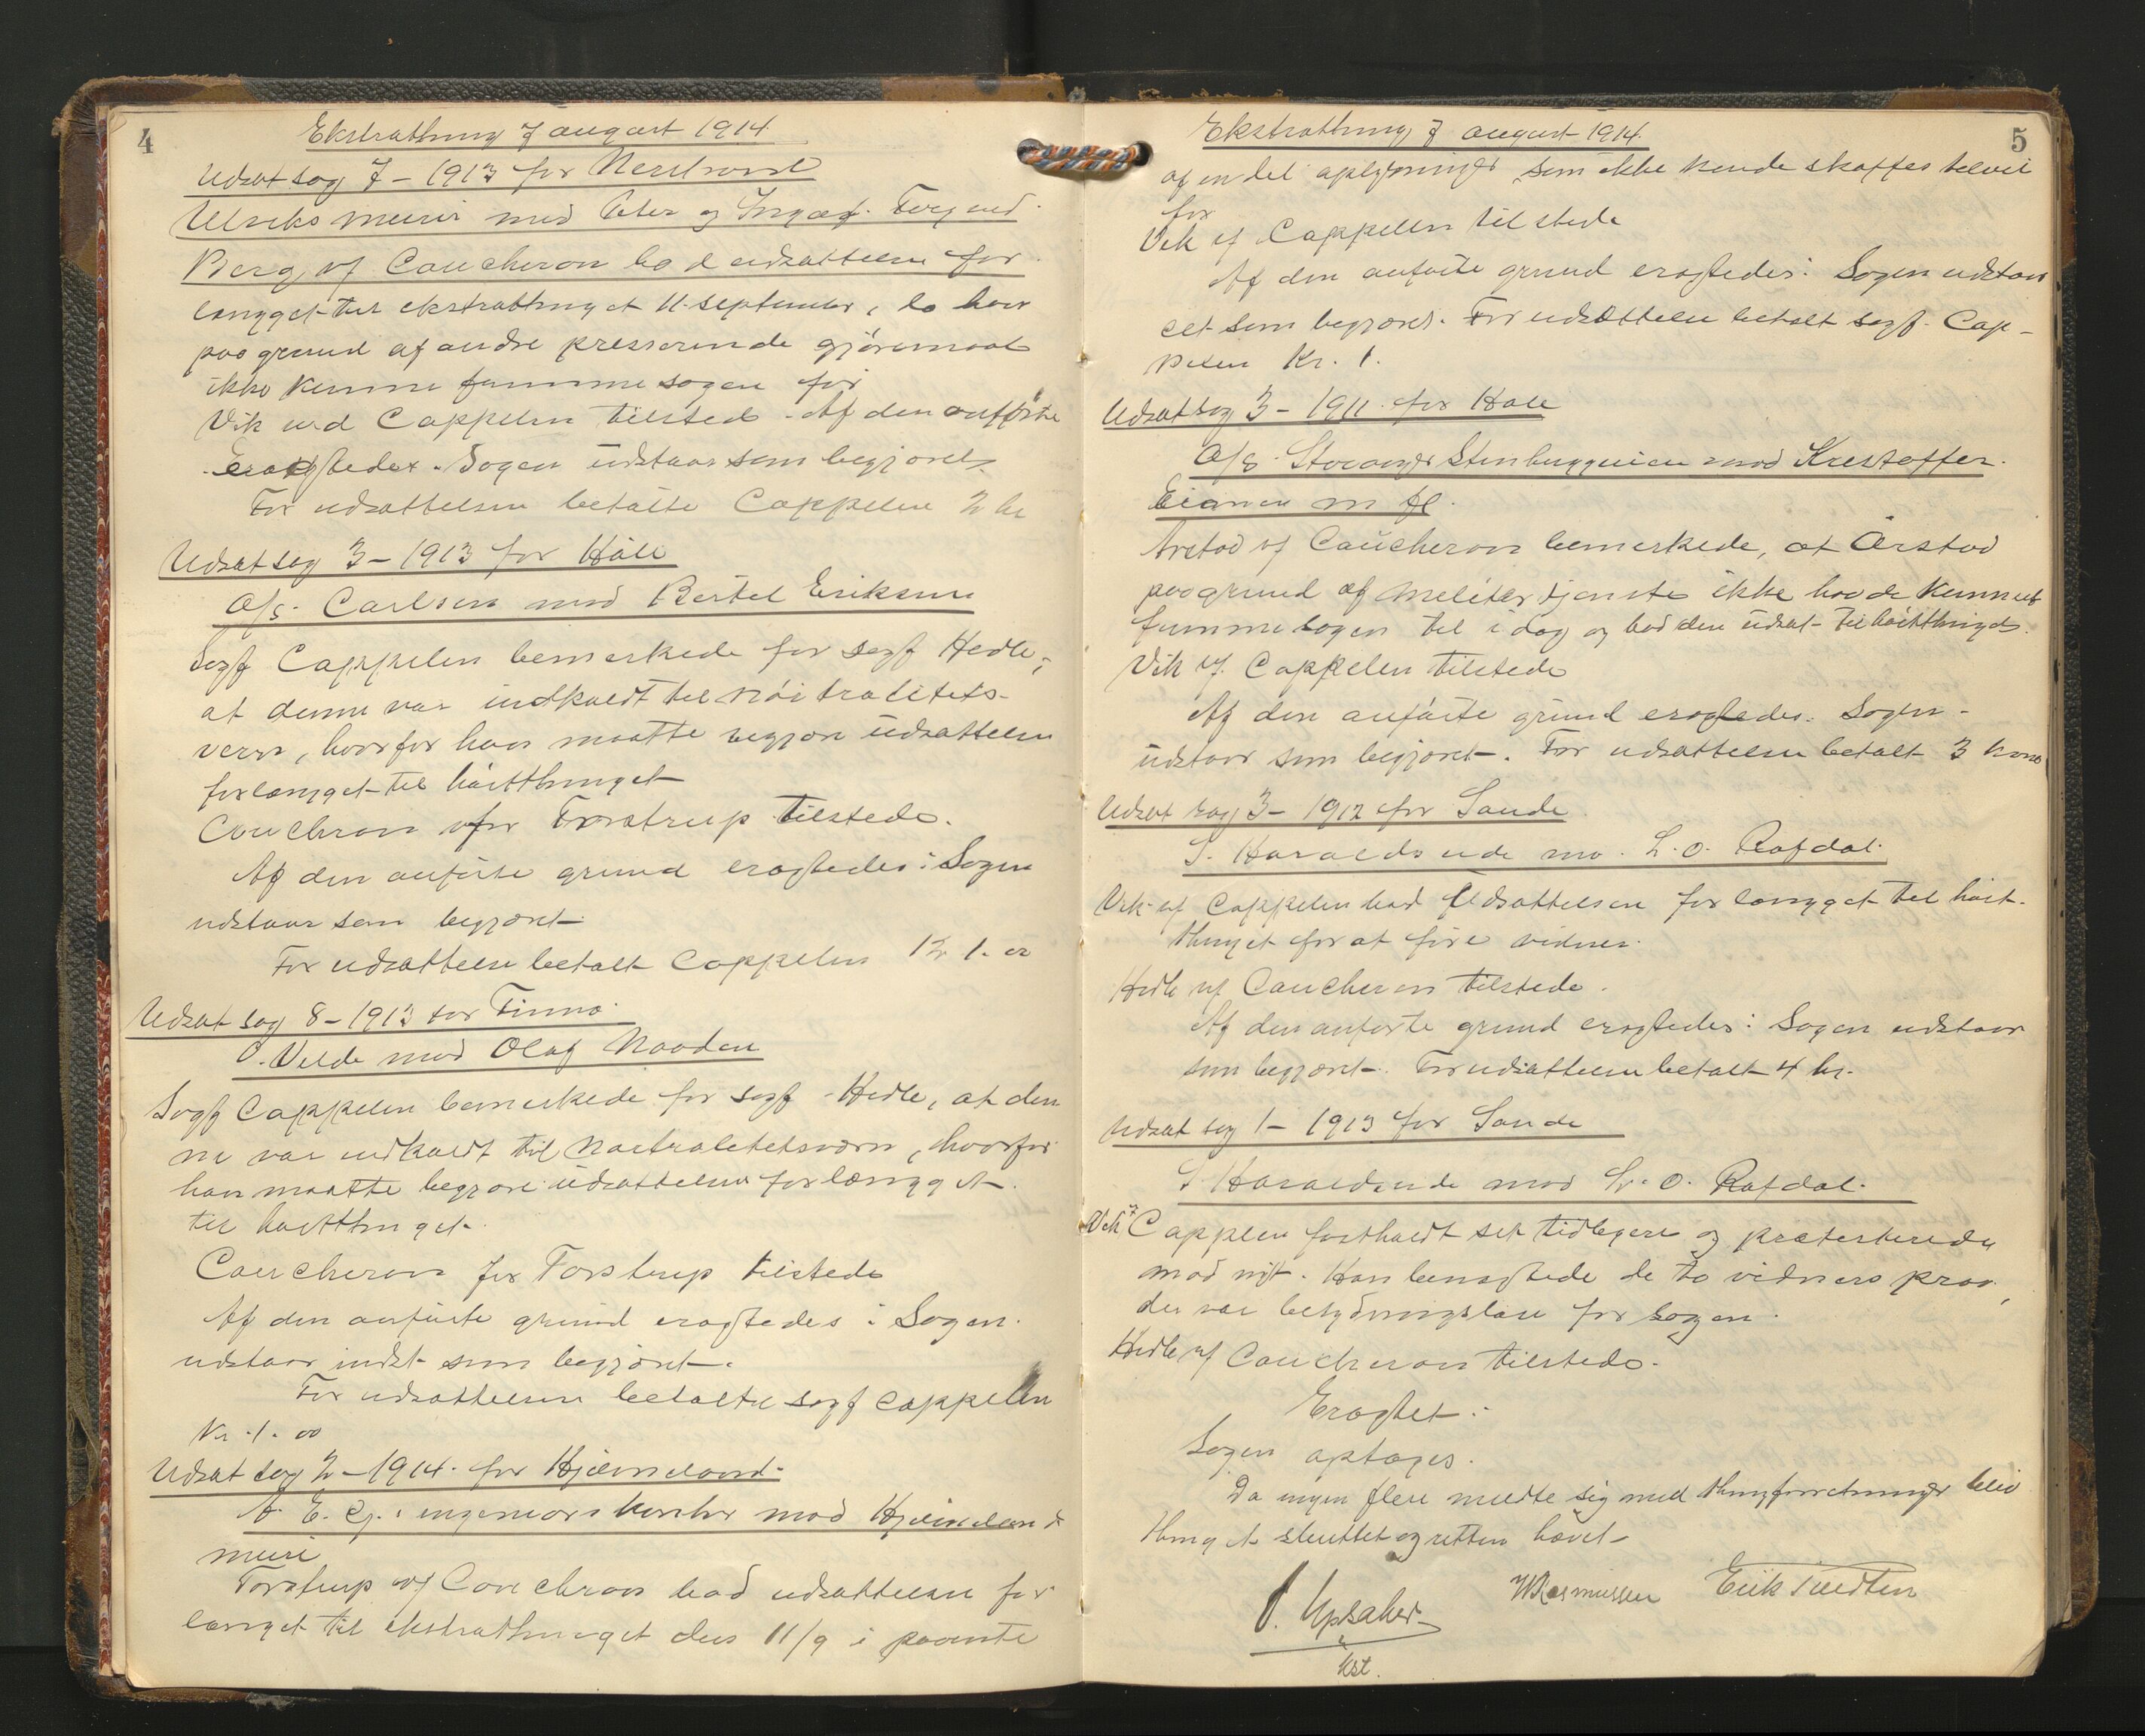 4
Ekstrathing 7 august 1914
Udsat sag 7 - 1913 for Nerstrand
Ulriks murer mod Peter og Ingvald Tergsed
Berg vf Coucheron bad udsættelsen for
længget til ekstrathinget 11 september, da han
paa grund af andre presserende gjøremaal
ikke kunne fremme sagen før
Vik ved Cappelen tilstede - Af den anførte
Eragtedes. Sagen udstaar som begjæret
For udsættelsen betalte Cappelen 2 kr
Udsat sag 3 - 1913 for Håle
A/S. Carlsen mod Bertel Eriksen
Sagf Cappelen bemerkede for sagf Hedle,
at denne var indkaldt til nøitralitets-
vern, hvorfor han maatte begjære udsættelsen
forlænget til høstthinget
Coucheron for Torstrup tilstede.
Af den anførte grund eragtedes: Sagen
udstaar som begjæret
For udsættelsen betalt Cappelen Kr 1.00
Udsat sag 8 - 1913 for Finnø
O. Velde mod Olaf Naaden
Sagf Cappelen bemerkede for sagf Hedle, at den
ne var indkaldt til naitralitetsværn, hvorfor
han maatte begjære udsættelsen forlænget
til høstthinget.
Coucheron for Torstrup tilstede
Af den anførte grund eragtedes: Sagen
udstaar indst som begjæret.
For udsættelsen betalte sagf Cappelen
Kr. 1.00
Udsat sag 2 - 1914 for Hjelmeland
A. E. G. ingeniørs kontor mod Hjelmeland
muri
Torstrup vf Coucheron bad udsættelsen for
længet til ekstrathinget den 11/9 i paavente
5
Ekstrathing 7 august 1914.
af en del oplysninger som ikke kunde skaffes tilveie
før
Vik vf Cappelen tilstede
Af den anførte grund eragtedes: Sagen udstaar
elt som begjæret. For udsættelsen betalt sagf. Cap-
pelen Kr. 1.
Udsat sag 3 - 1911 for Håle
A/S. Stavanger Stenhuggerien mod Kristoffer
Eianen m fl.
Arstad vf Coucheron bemerkede, at Årstad
paa grund af militærtjeneste ikke havde kunnet
fremme sagen til i dag og bad den udsat til høstthinget.
Vik vf. Cappelen tilstede
Af den anførte grund eragtedes: Sagen
udstaar som begjæret. For udsættelsen betalt 3 kroner
Udsat sag 3 - 1912 for Sande
S. Haraldseide mo. L. O. Rafdal.
Vik vf Cappelen bad udsættelsen forlænget til høst-
thinget for at føre vidner.
Hedle vf Coucheron tilstede.
Af den anførte grund eragtedes: Sagen udstaar
som begjæret. For udsættelsen betalt 4 kr.
Udsat sag 1 - 1913 for Sande
S. Haraldseide mod L. O. Rafdal.
Vik vf Cappelen fastholdt sit tidligere og protesterede
mod nyt. Han benægtede de to vidners prov,
der var betydningsløse for sagen.
Hedle vf Coucheron tilstede.
Eragtet:
Sagen optages.
Da ingen flere meldte sig med thingforretninger blev
thinget sluttet og retten hævet
O. Upsaker
kst.
W Rasmussen
Erik Tuedten